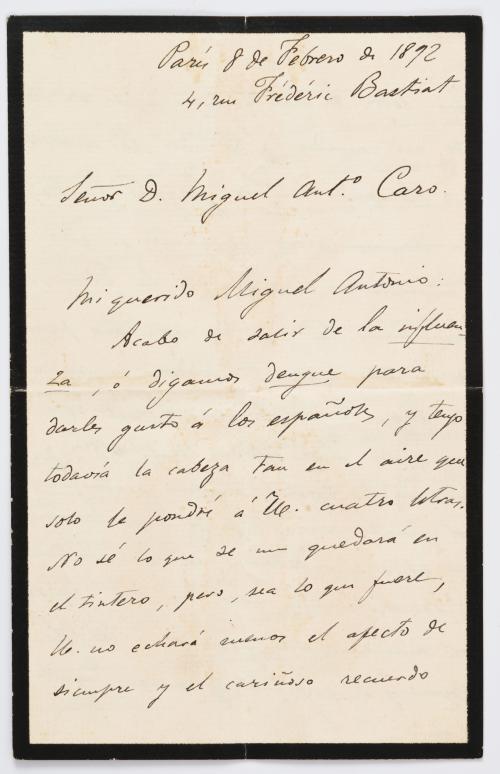 París 8 de Febrero de 1892
4, rue Frédéric Bastiat
Señor D. Miguel Ant.º Caro.
Mi querido Miguel Antonio:
Acabo de salir de la influen-
za, ó digamos dengue para
darles gusto á los españoles, y tengo
todavía la cabeza tan en el aire que
solo le pondré á U. cuatro letras.
No sé lo que se me quedará en
el tintero, pero, sea lo que fuere,
U. no echará menos el afecto de
siempre y el cariñoso recuerdo